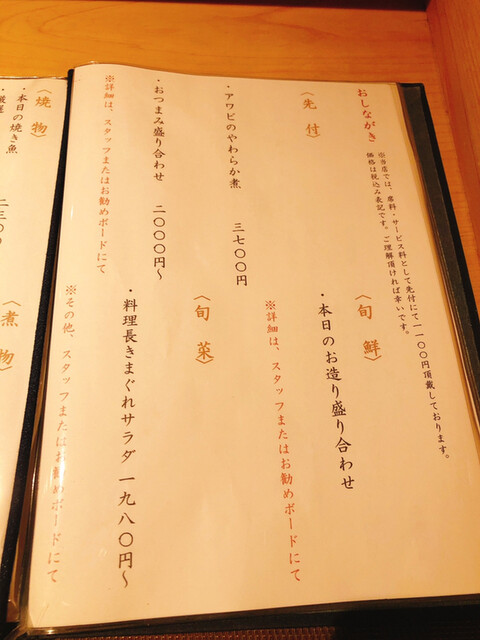 おしながき
※当店では、席料・サービス料として先付にて一一〇〇円頂戴しております。
価格は税込み表記です。ご理解頂ければ幸いです。
〈先付〉
・アワビのやわらか煮 三七〇〇円
・おつまみ盛り合わせ 二〇〇〇円〜
※詳細は、スタッフまたはお勧めボードにて
〈旬鮮〉
・本日のお造り盛り合わせ
※詳細は、スタッフまたはお勧めボードにて
〈旬菜〉
・料理長きまぐれサラダ 一九八〇円〜
※その他、スタッフまたはお勧めボードにて
〈焼物〉
・本日の焼き魚
〈煮物〉